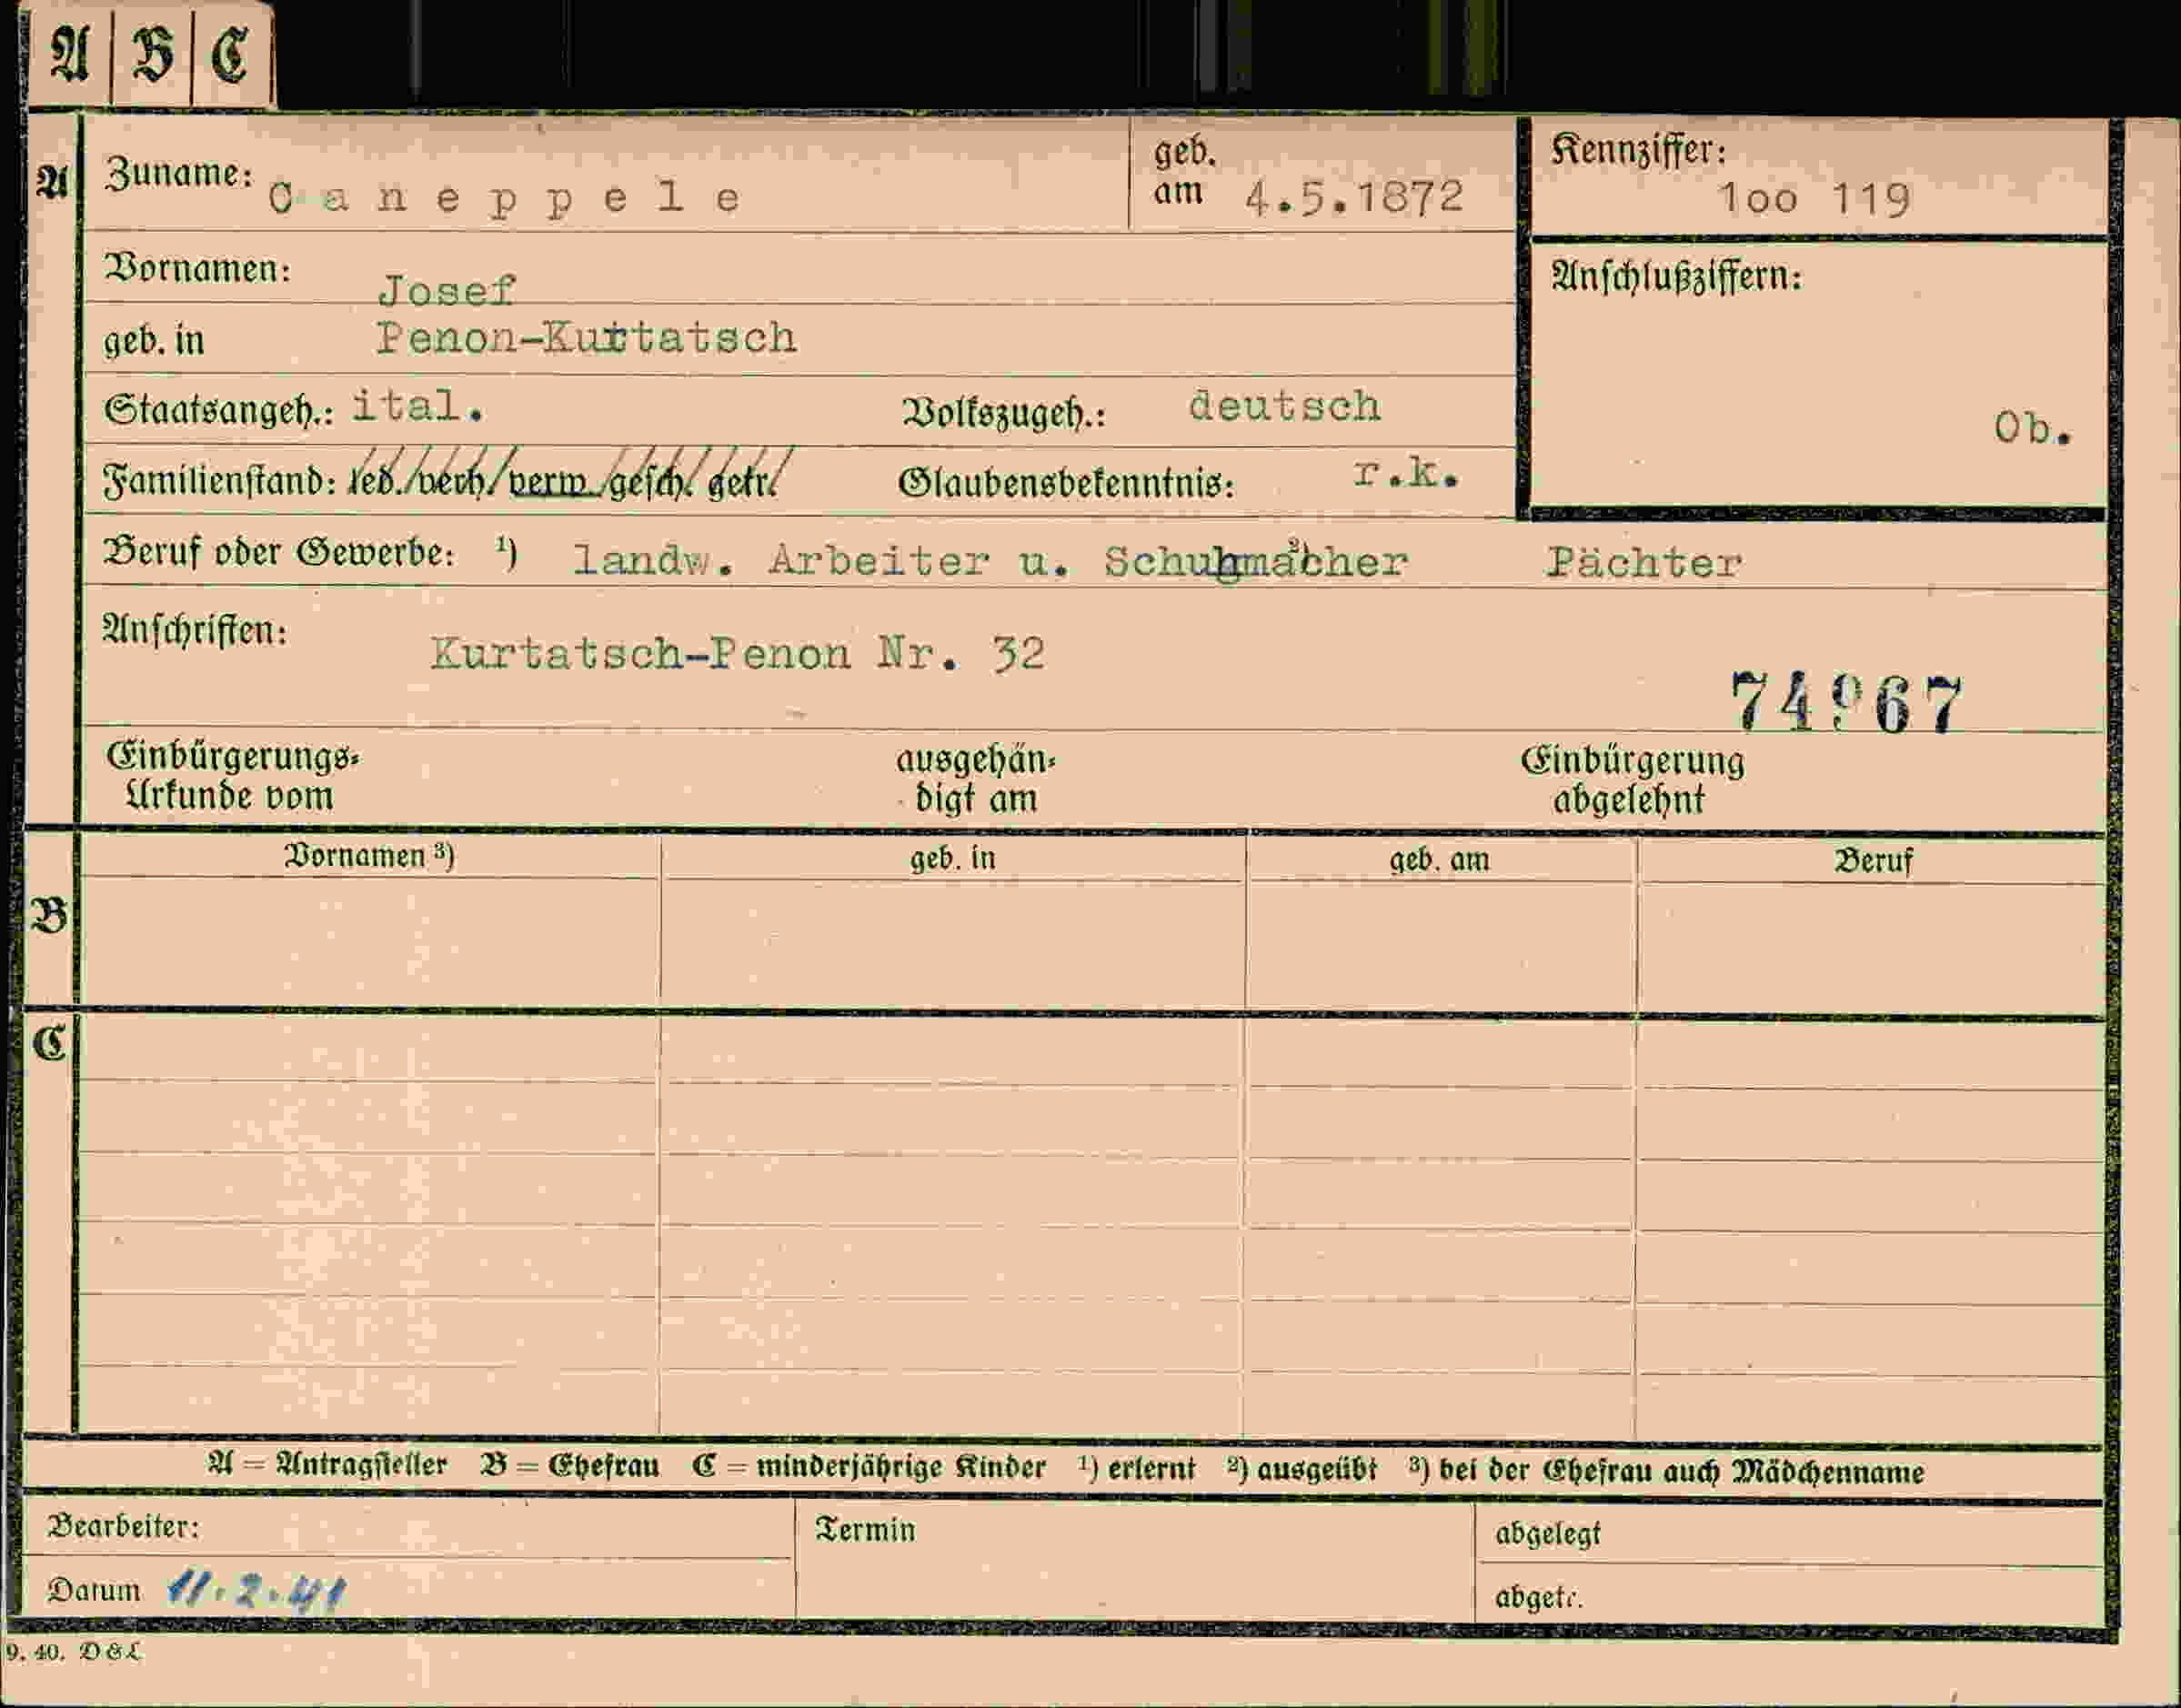 A B C
A Zuname: Caneppele geb. am 4.5.1872 Kennziffer: 1oo 119
Vornamen: Josef
Anschlußziffern:
geb. in Penon-Kurtatsch
Staatsangeh.: ital. Volkszugeh.: deutsch
Ob.
Familienstand: led./verh./verw./gesch./getr. Glaubensbekenntnis: r.k.
Beruf oder Gewerbe: ¹) landw. Arbeiter u. Schuhmacher ²) Pächter
Anschriften: Kurtatsch-Penon Nr. 32
74967
Einbürgerungs- ausgehän- Einbürgerung
Urkunde vom digt am abgelehnt
Vornamen ³) geb. in geb. am Beruf
B
C
A = Antragsteller B = Ehefrau C = minderjährige Kinder ¹) erlernt ²) ausgeübt ³) bei der Ehefrau auch Mädchenname
Bearbeiter: Termin abgelegt
Datum 11.2.41 abgetr.
9. 40. D & L